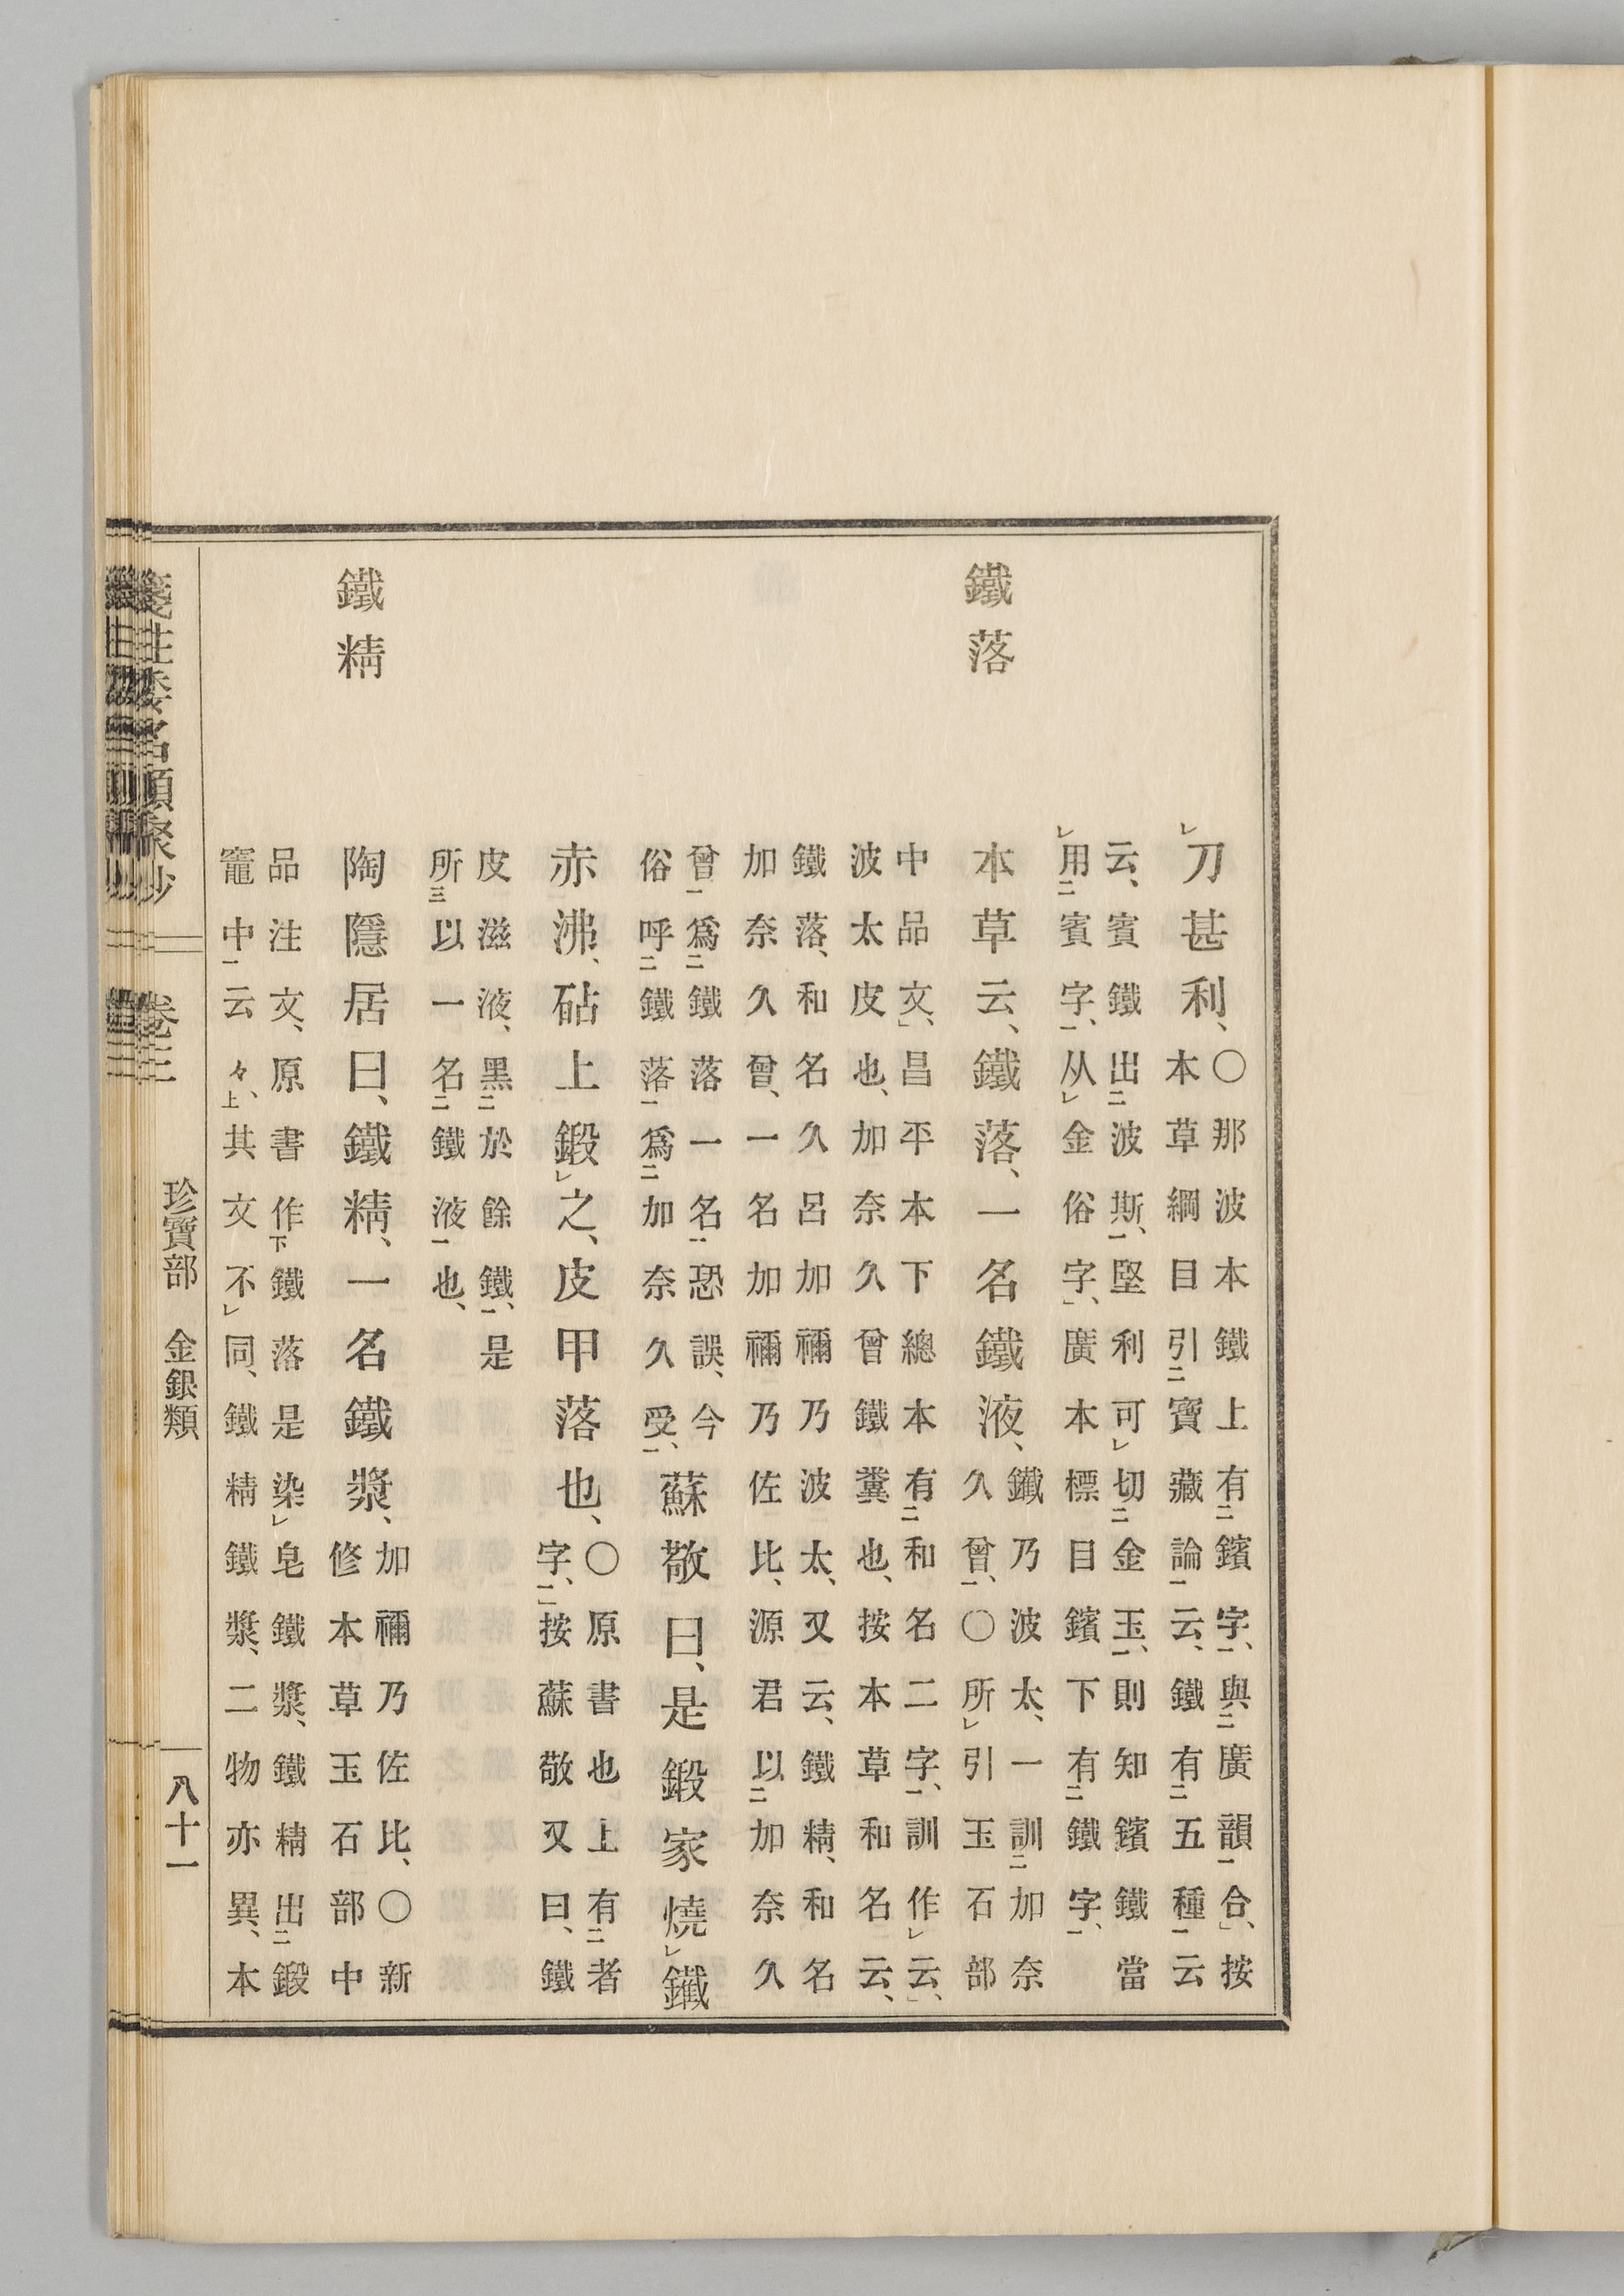 刀甚利、
〇那波本鐵上有鑌字、與廣韻合、按
本草綱目引寶藏論云、鐵有五種云
云、賓鐵出波斯、堅利可切金玉、則知鑌鐵當
用賓字、从金俗字、廣本標目鑌下有鐵字、
鐵落
本草云、鐵落、一名鐵液、
鐵乃波太、一訓加奈
久曾、〇所引玉石部
中品文、昌平本下總本有和名二字、訓作云、
波太皮也、加奈久曾鐵糞也、按本草和名云、
鐵落、和名久呂加禰乃波太、又云、鐵精、和名
加奈久曾、一名加禰乃佐比、源君以加奈久
曾爲鐵落一名恐誤、今
俗呼鐵落爲加奈久受、
蘇敬曰、是鍛家燒鐵
赤沸、砧上鍛之、皮甲落也、
〇原書也上有者
字、按蘇敬又曰、鐵
皮滋液、黑於餘鐵、是
所以一名鐵液也、
鐵精
陶隱居曰、鐵精、一名鐵漿、
加禰乃佐比、〇新
修本草玉石部中
品注文、原書作鐵落是染皂鐵漿、鐵精出鍛
竈中云々、其文不同、鐵精鐵漿、二物亦異、本
箋注倭名類聚抄 卷三 珍寶部 金銀類 八十一